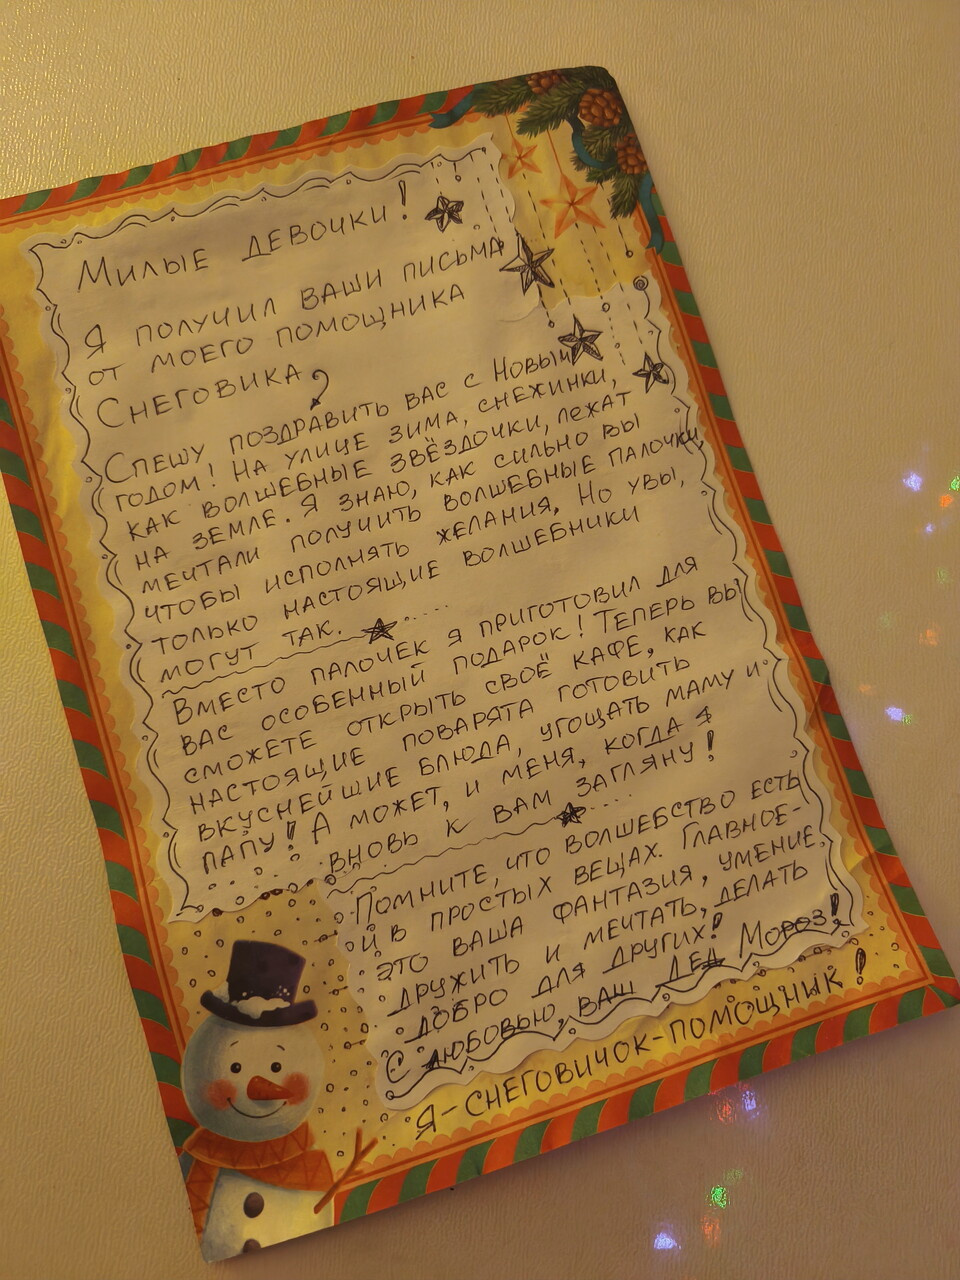 Милые девочки!
Я получил ваши письма
от моего помощника
Снеговика
Спешу поздравить вас с Новым
годом! На улице зима, снежинки,
как волшебные звёздочки, лежат
на земле. Я знаю, как сильно вы
мечтали получить волшебные палочки,
чтобы исполнять желания, Но увы,
только настоящие волшебники
могут так.
Вместо палочек я приготовил для
вас особенный подарок! Теперь вы
сможете открыть своё кафе, как
настоящие поварята готовить
вкуснейшие блюда, угощать маму и
папу! А может, и меня, когда я
вновь к вам загляну!
Помните, что волшебство есть
и в простых вещах. Главное-
это ваша фантазия, умение
дружить и мечтать, делать
добро для других!
С любовью, ваш Дед Мороз!
Я-снеговичок-помощник!